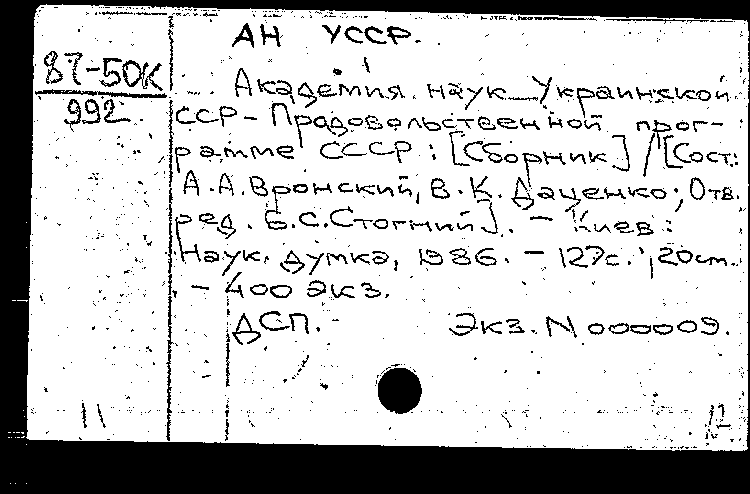 АН УССР.
87-50К
992
Академия наук Украинской
ССР - Продовольственной прог-
рамме СССР : [Сборник] / [Сост.:
А.А.Вронский, В.К.Даценко; Отв.
ред. Б.С.Стогний]. - Киев :
Наук. думка, 1986. - 127с.; 20см.
- 400 экз.
ДСП. Экз. N 000009.
11 12